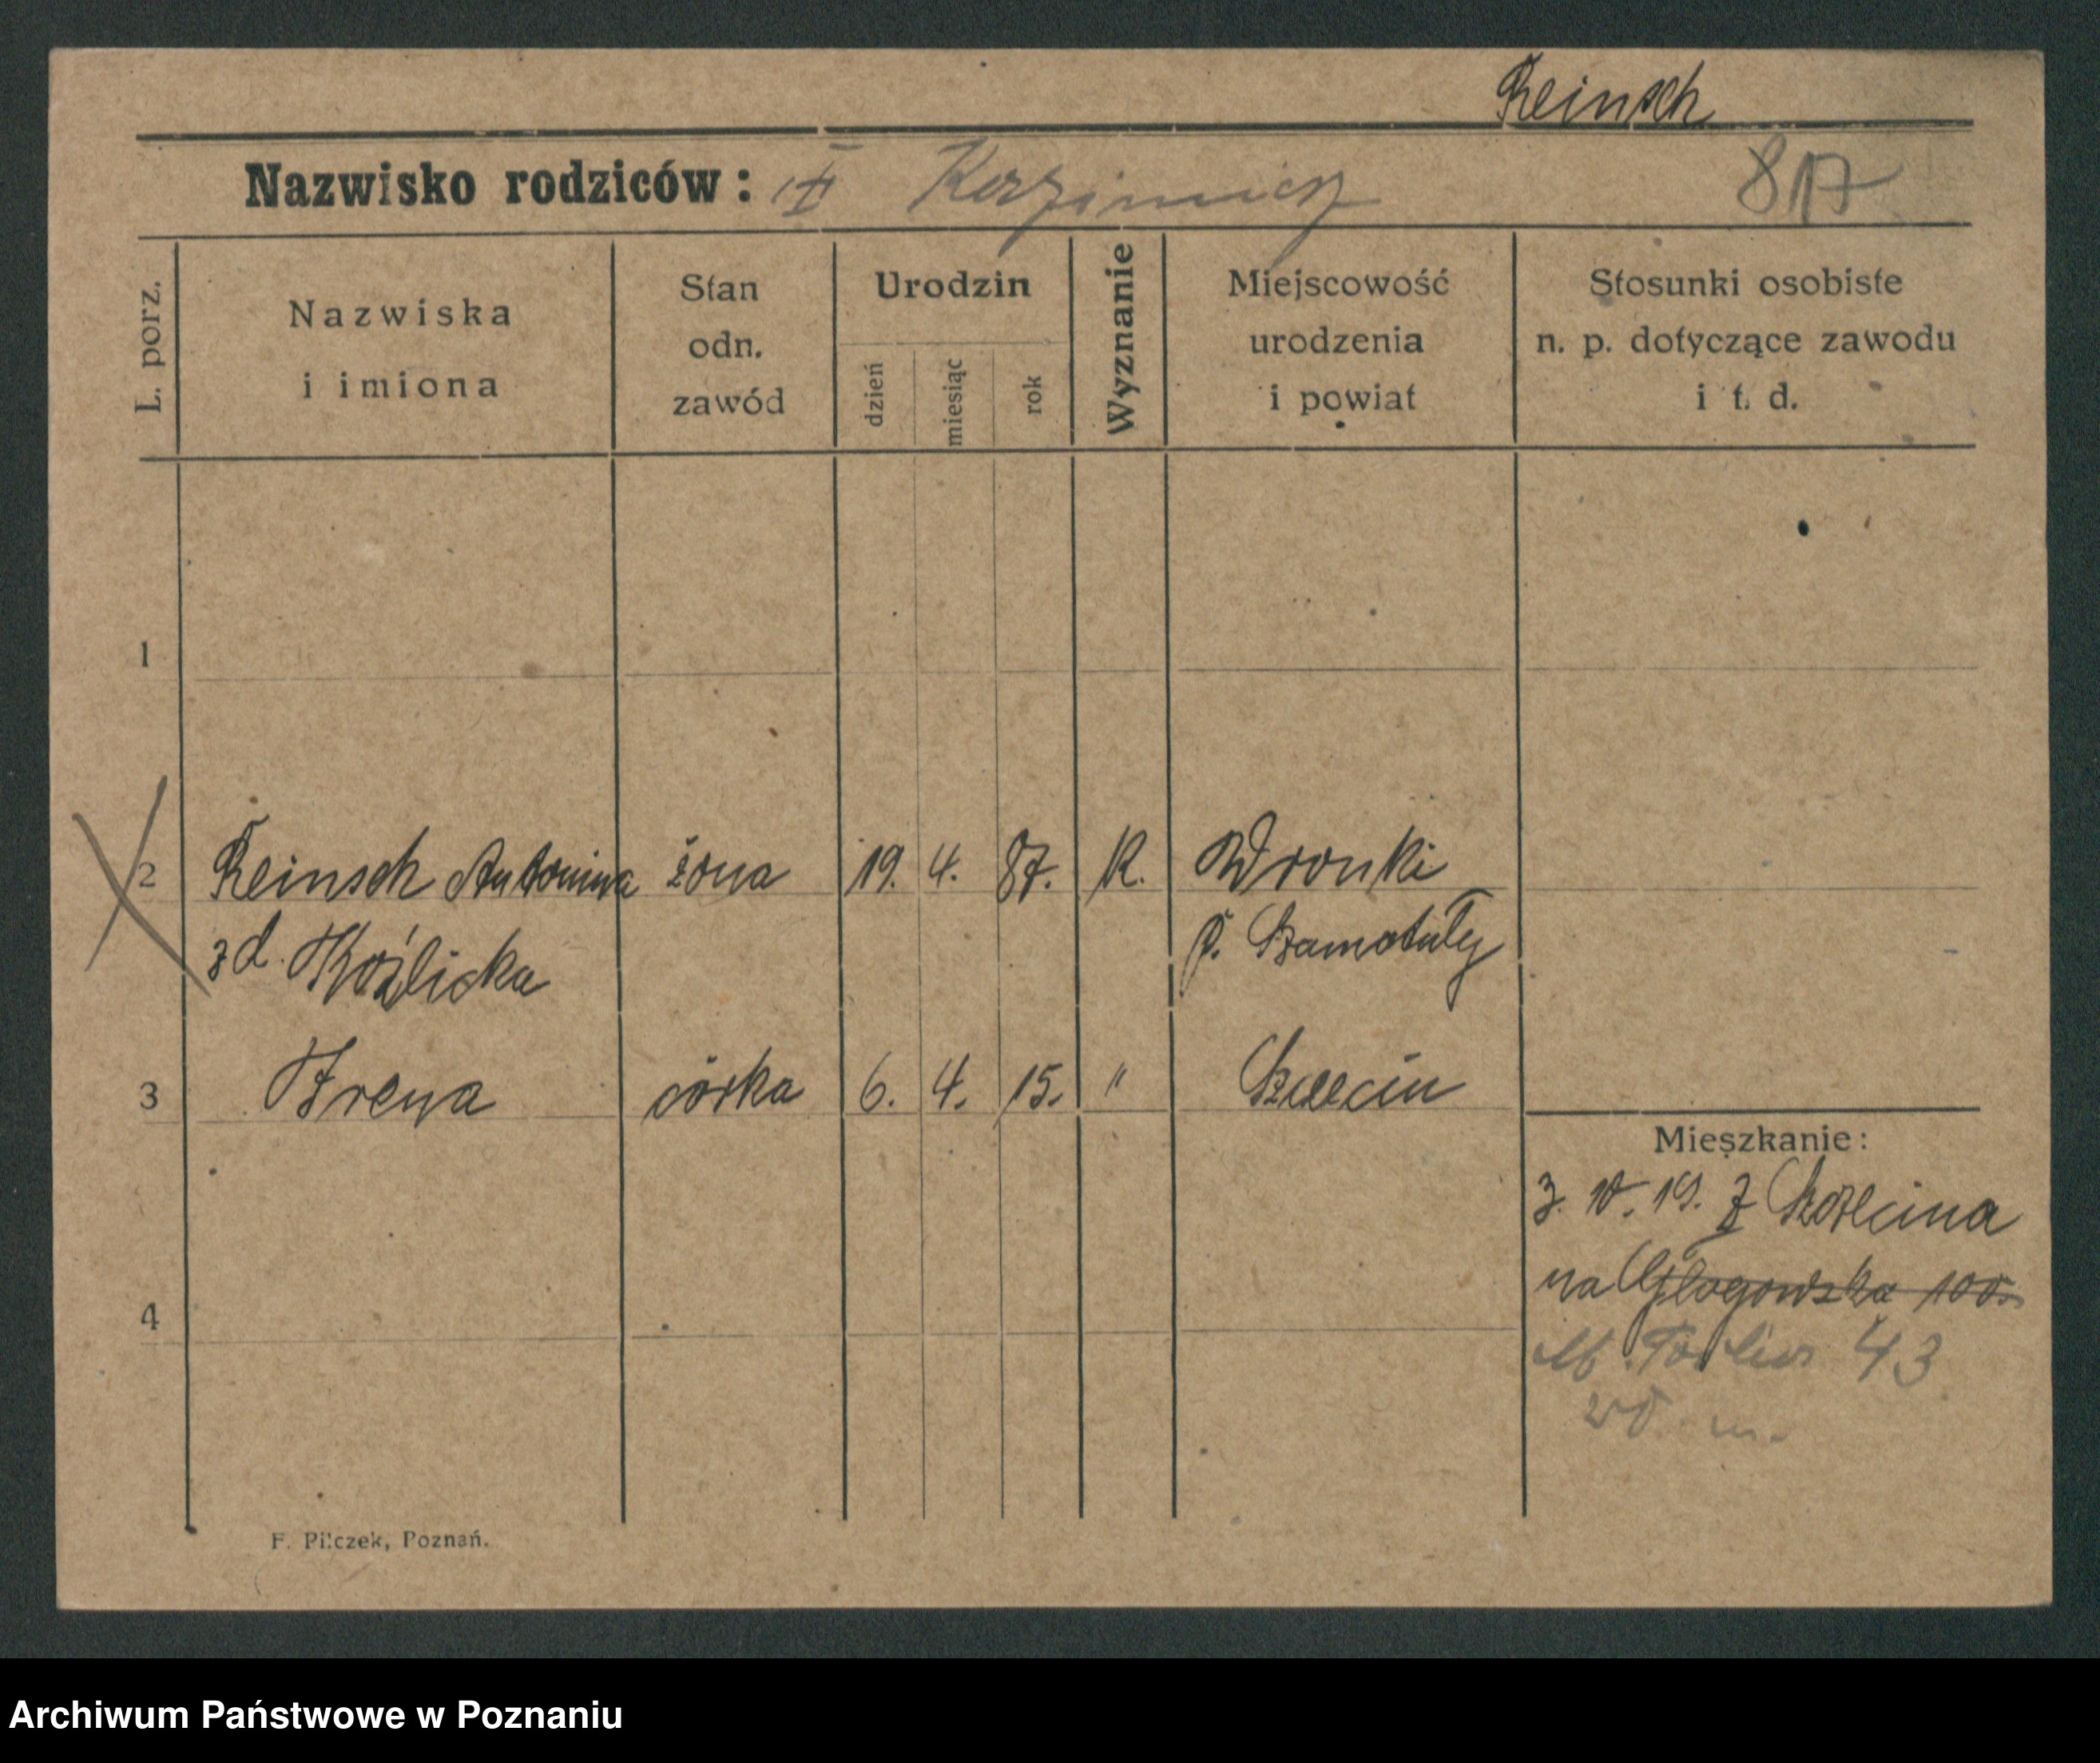 Reinsch
Nazwisko rodziców: Kazimierz 817
L. porz.
Nazwiska
i imiona
Stan
odn.
zawód
Urodzin
dzień
miesiąc
rok
Wyznanie
Miejscowość
urodzenia
i powiat
Stosunki osobiste
n. p. dotyczące zawodu
i t. d.
1
2 Reinsch Antonina żona 19. 4. 87. K. Wronki
zd. Koźlicka p. Szamotuły
3 Irena córka 6. 4. 15. " Szczecin
Mieszkanie:
3. 10. 19. z Szczecina
na Głogowska 100
4
43
F. Pilczek, Poznań.
Archiwum Państwowe w Poznaniu